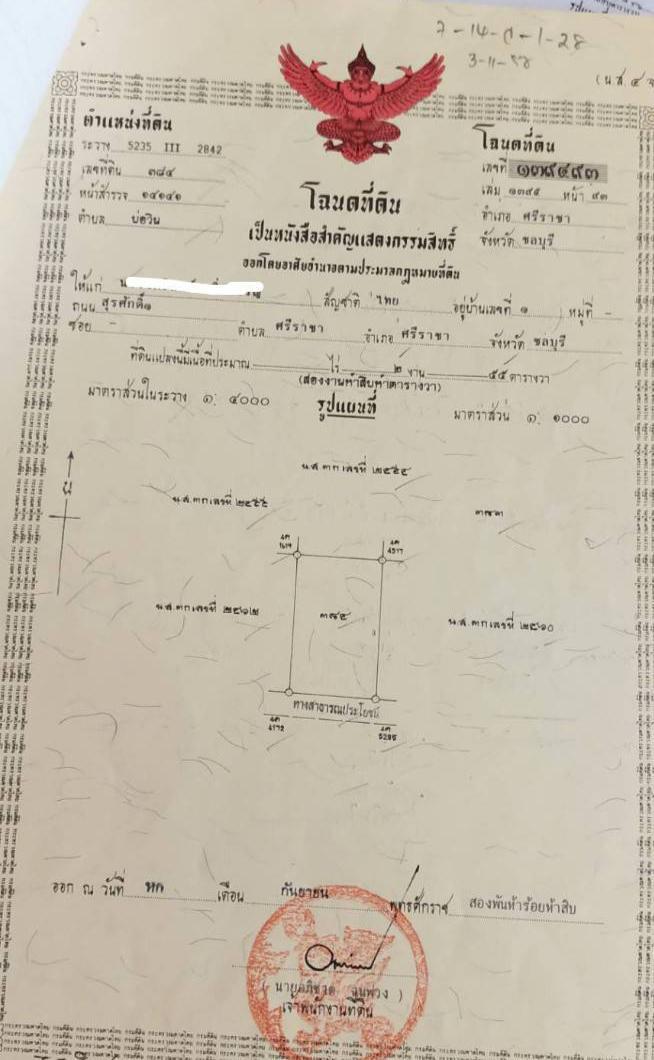 3-11-58
(น.ส. ๔ จ
ตำแหน่งที่ดิน
ระวาง 5235 III 2842
เลขที่ดิน ๓๘๔
หน้าสำรวจ ๑๔๑๔๑
ตำบล บ่อวิน
โฉนดที่ดิน
เลขที่ ๑๓๙๔๙๓
เล่ม ๑๓๙๕ หน้า ๙๓
อำเภอ ศรีราชา
จังหวัด ชลบุรี
โฉนดที่ดิน
เป็นหนังสือสำคัญแสดงกรรมสิทธิ์
ออกโดยอาศัยอำนาจตามประมวลกฎหมายที่ดิน
ให้แก่ สัญชาติ ไทย อยู่บ้านเลขที่ ๑ หมู่ที่ -
ถนน สุรศักดิ์๑
ซอย - ตำบล ศรีราชา อำเภอ ศรีราชา จังหวัด ชลบุรี
ที่ดินแปลงนี้มีเนื้อที่ประมาณ ไร่ ๒ งาน ๕๕ ตารางวา
(สองงานห้าสิบห้าตารางวา)
มาตราส่วนในระวาง ๑: ๔๐๐๐
รูปแผนที่
มาตราส่วน ๑: ๑๐๐๐
น
น.ส.๓ก เลขที่
น.ส.๓ก เลขที่
๓๘๓
4517
น.ส.๓ก เลขที่
๓๘๔
น.ส.๓ก เลขที่
ทางสาธารณประโยชน์
4172
5295
ออก ณ วันที่ หก เดือน กันยายน พุทธศักราช สองพันห้าร้อยห้าสิบ
เจ้าพนักงานที่ดิน